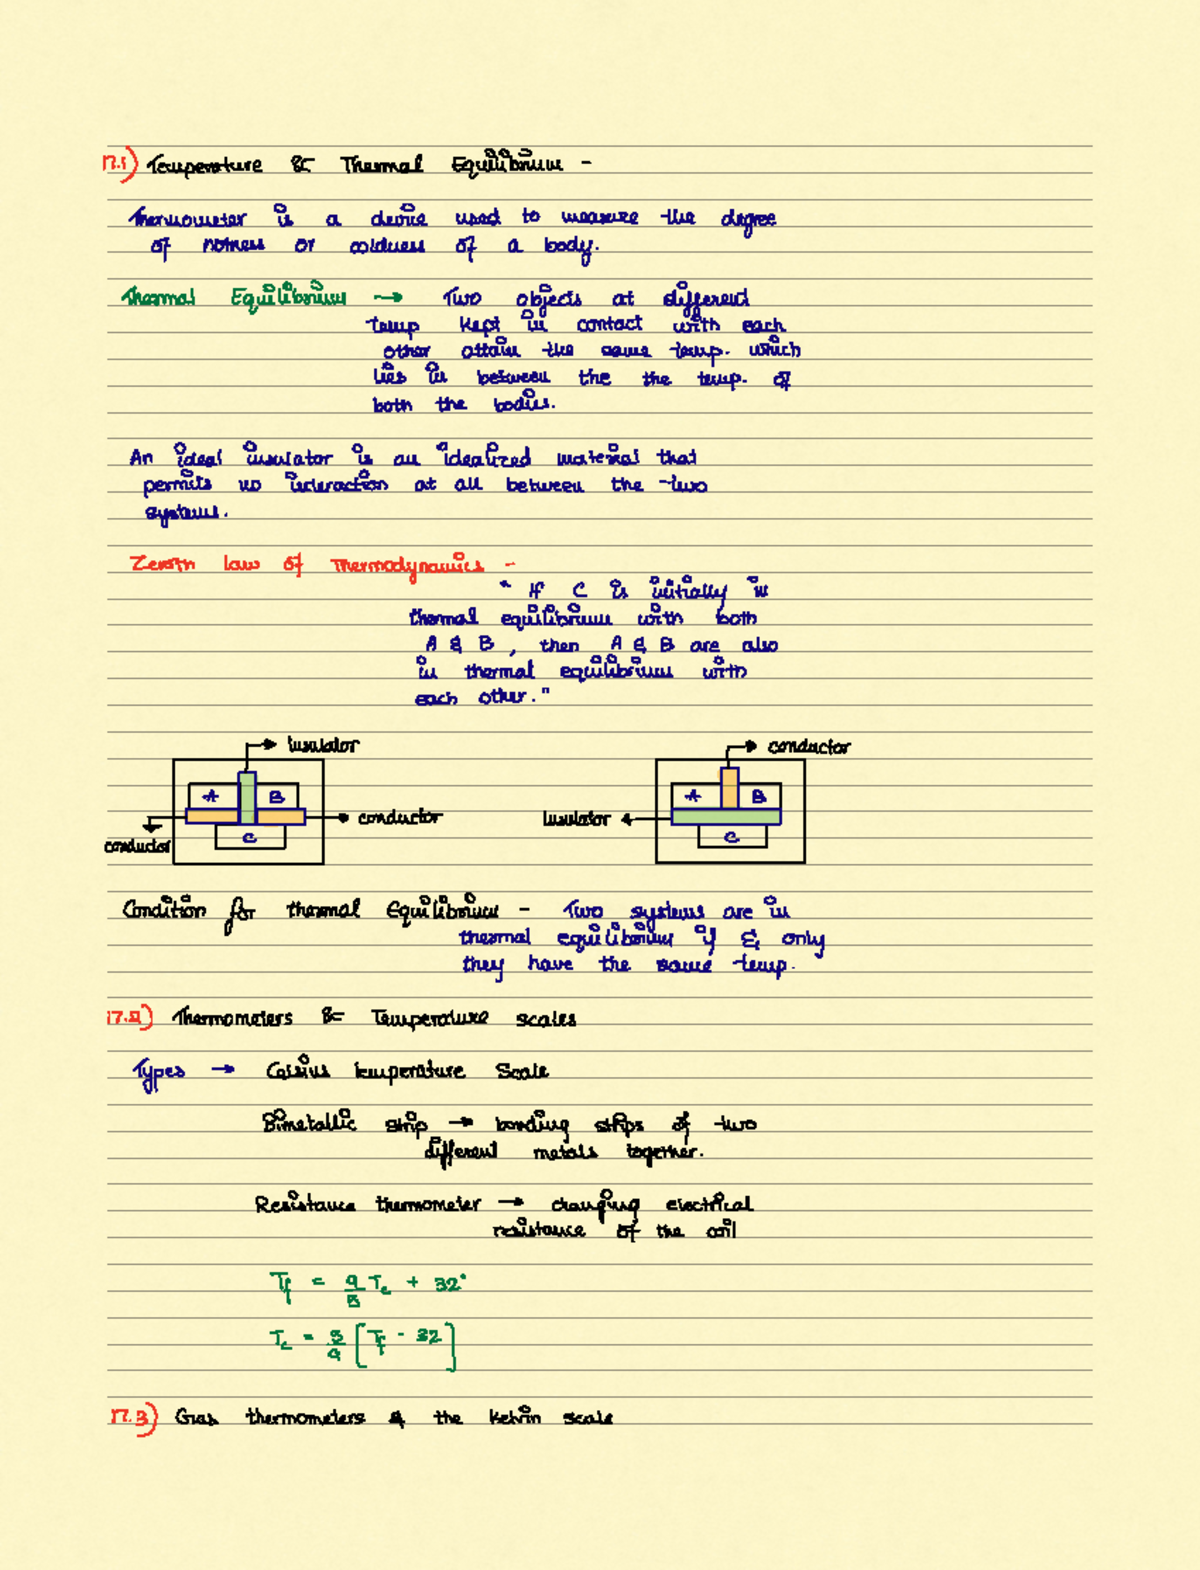 17.1) Temperature & Thermal Equilibrium -
Thermometer is a device used to measure the degree
of hotness or coldness of a body.
Thermal Equilibrium → Two objects at different
temp kept in contact with each
other attain the same temp. which
lies in between the the temp. of
both the bodies.
An ideal insulator is an idealized material that
permits no interaction at all between the two
systems.
Zeroth law of Thermodynamics -
" If C is initially in
thermal equilibrium with both
A & B, then A & B are also
in thermal equilibrium with
each other."
insulator
conductor
A B
A B
conductor
insulator
conductor
C
C
Condition for thermal Equilibrium - Two systems are in
thermal equilibrium if & only
they have the same temp.
17.2) Thermometers & Temperature scales
Types → Celsius temperature Scale
Bimetallic strip → bonding strips of two
different metals together.
Resistance thermometer → changing electrical
resistance of the coil
Tf = 9/5 Tc + 32°
Tc = 5/9 [Tf - 32]
17.3) Gas thermometers & the Kelvin scale